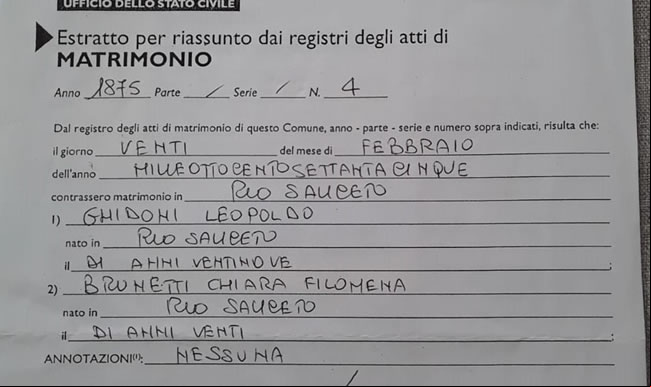 UFFICIO DELLO STATO CIVILE
Estratto per riassunto dai registri degli atti di
MATRIMONIO
Anno 1875 Parte / Serie / N. 4
Dal registro degli atti di matrimonio di questo Comune, anno - parte - serie e numero sopra indicati, risulta che:
il giorno VENTI del mese di FEBBRAIO
dell'anno MILLEOTTOCENTOSETTANTACINQUE
contrassero matrimonio in RIO SALICETO
1) GHIDONI LEOPOLDO
nato in RIO SALICETO
il DI ANNI VENTINOVE ;
2) BRUNETTI CHIARA FILOMENA
nato in RIO SALICETO
il DI ANNI VENTI ;
ANNOTAZIONI(1): NESSUNA
/